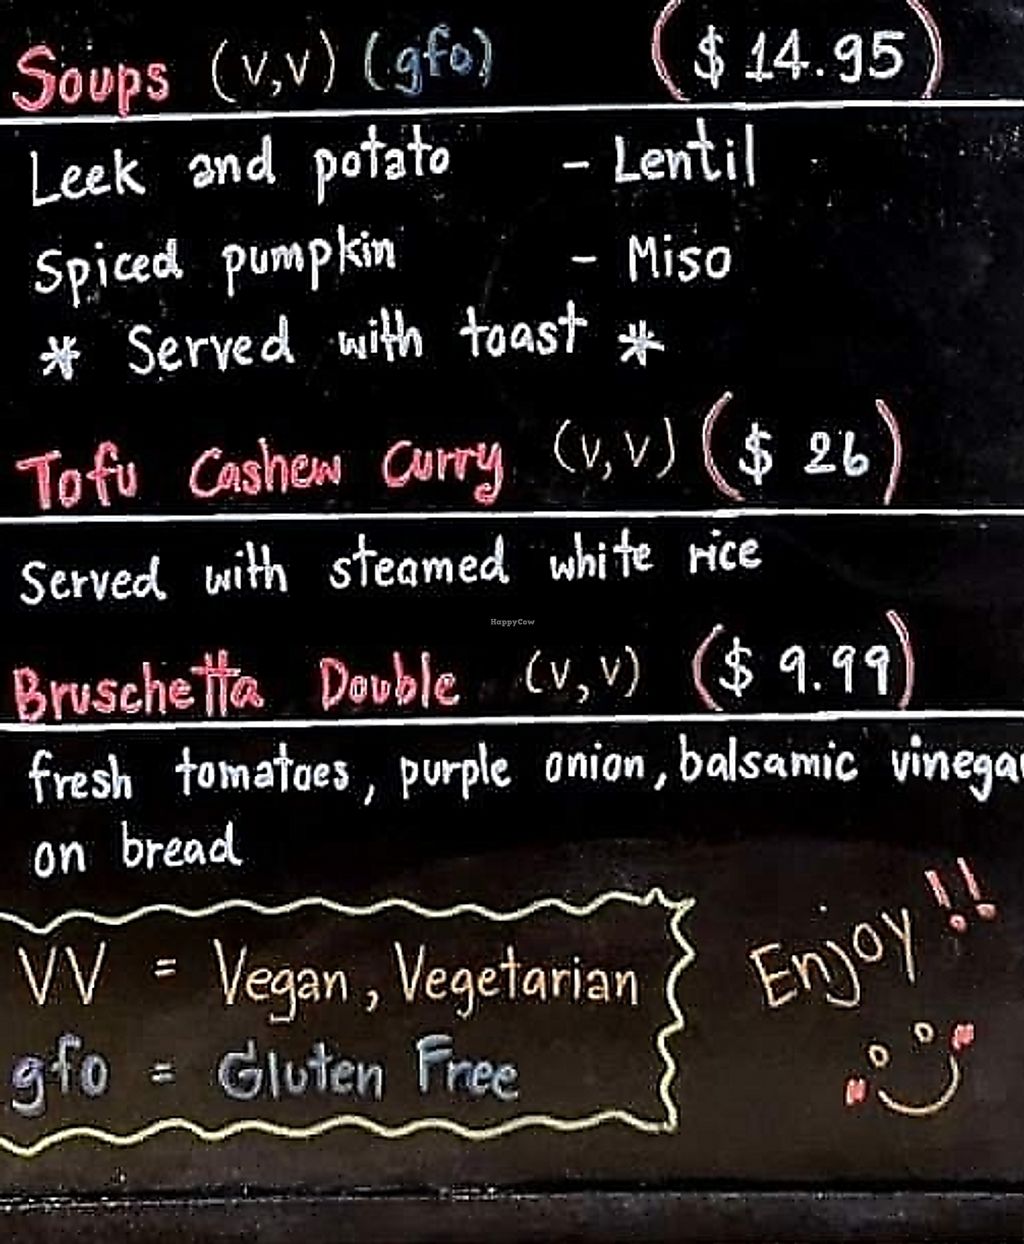 Soups (v,v) (gfo) ($ 14.95)
Leek and potato - Lentil
Spiced pumpkin - Miso
* Served with toast *
Tofu Cashew Curry (v,v) ($ 26)
Served with steamed white rice
HappyCow
Bruschetta Double (v,v) ($ 9.99)
fresh tomatoes, purple onion, balsamic vinega
on bread
Enjoy!!
VV = Vegan, Vegetarian
gfo = Gluten Free